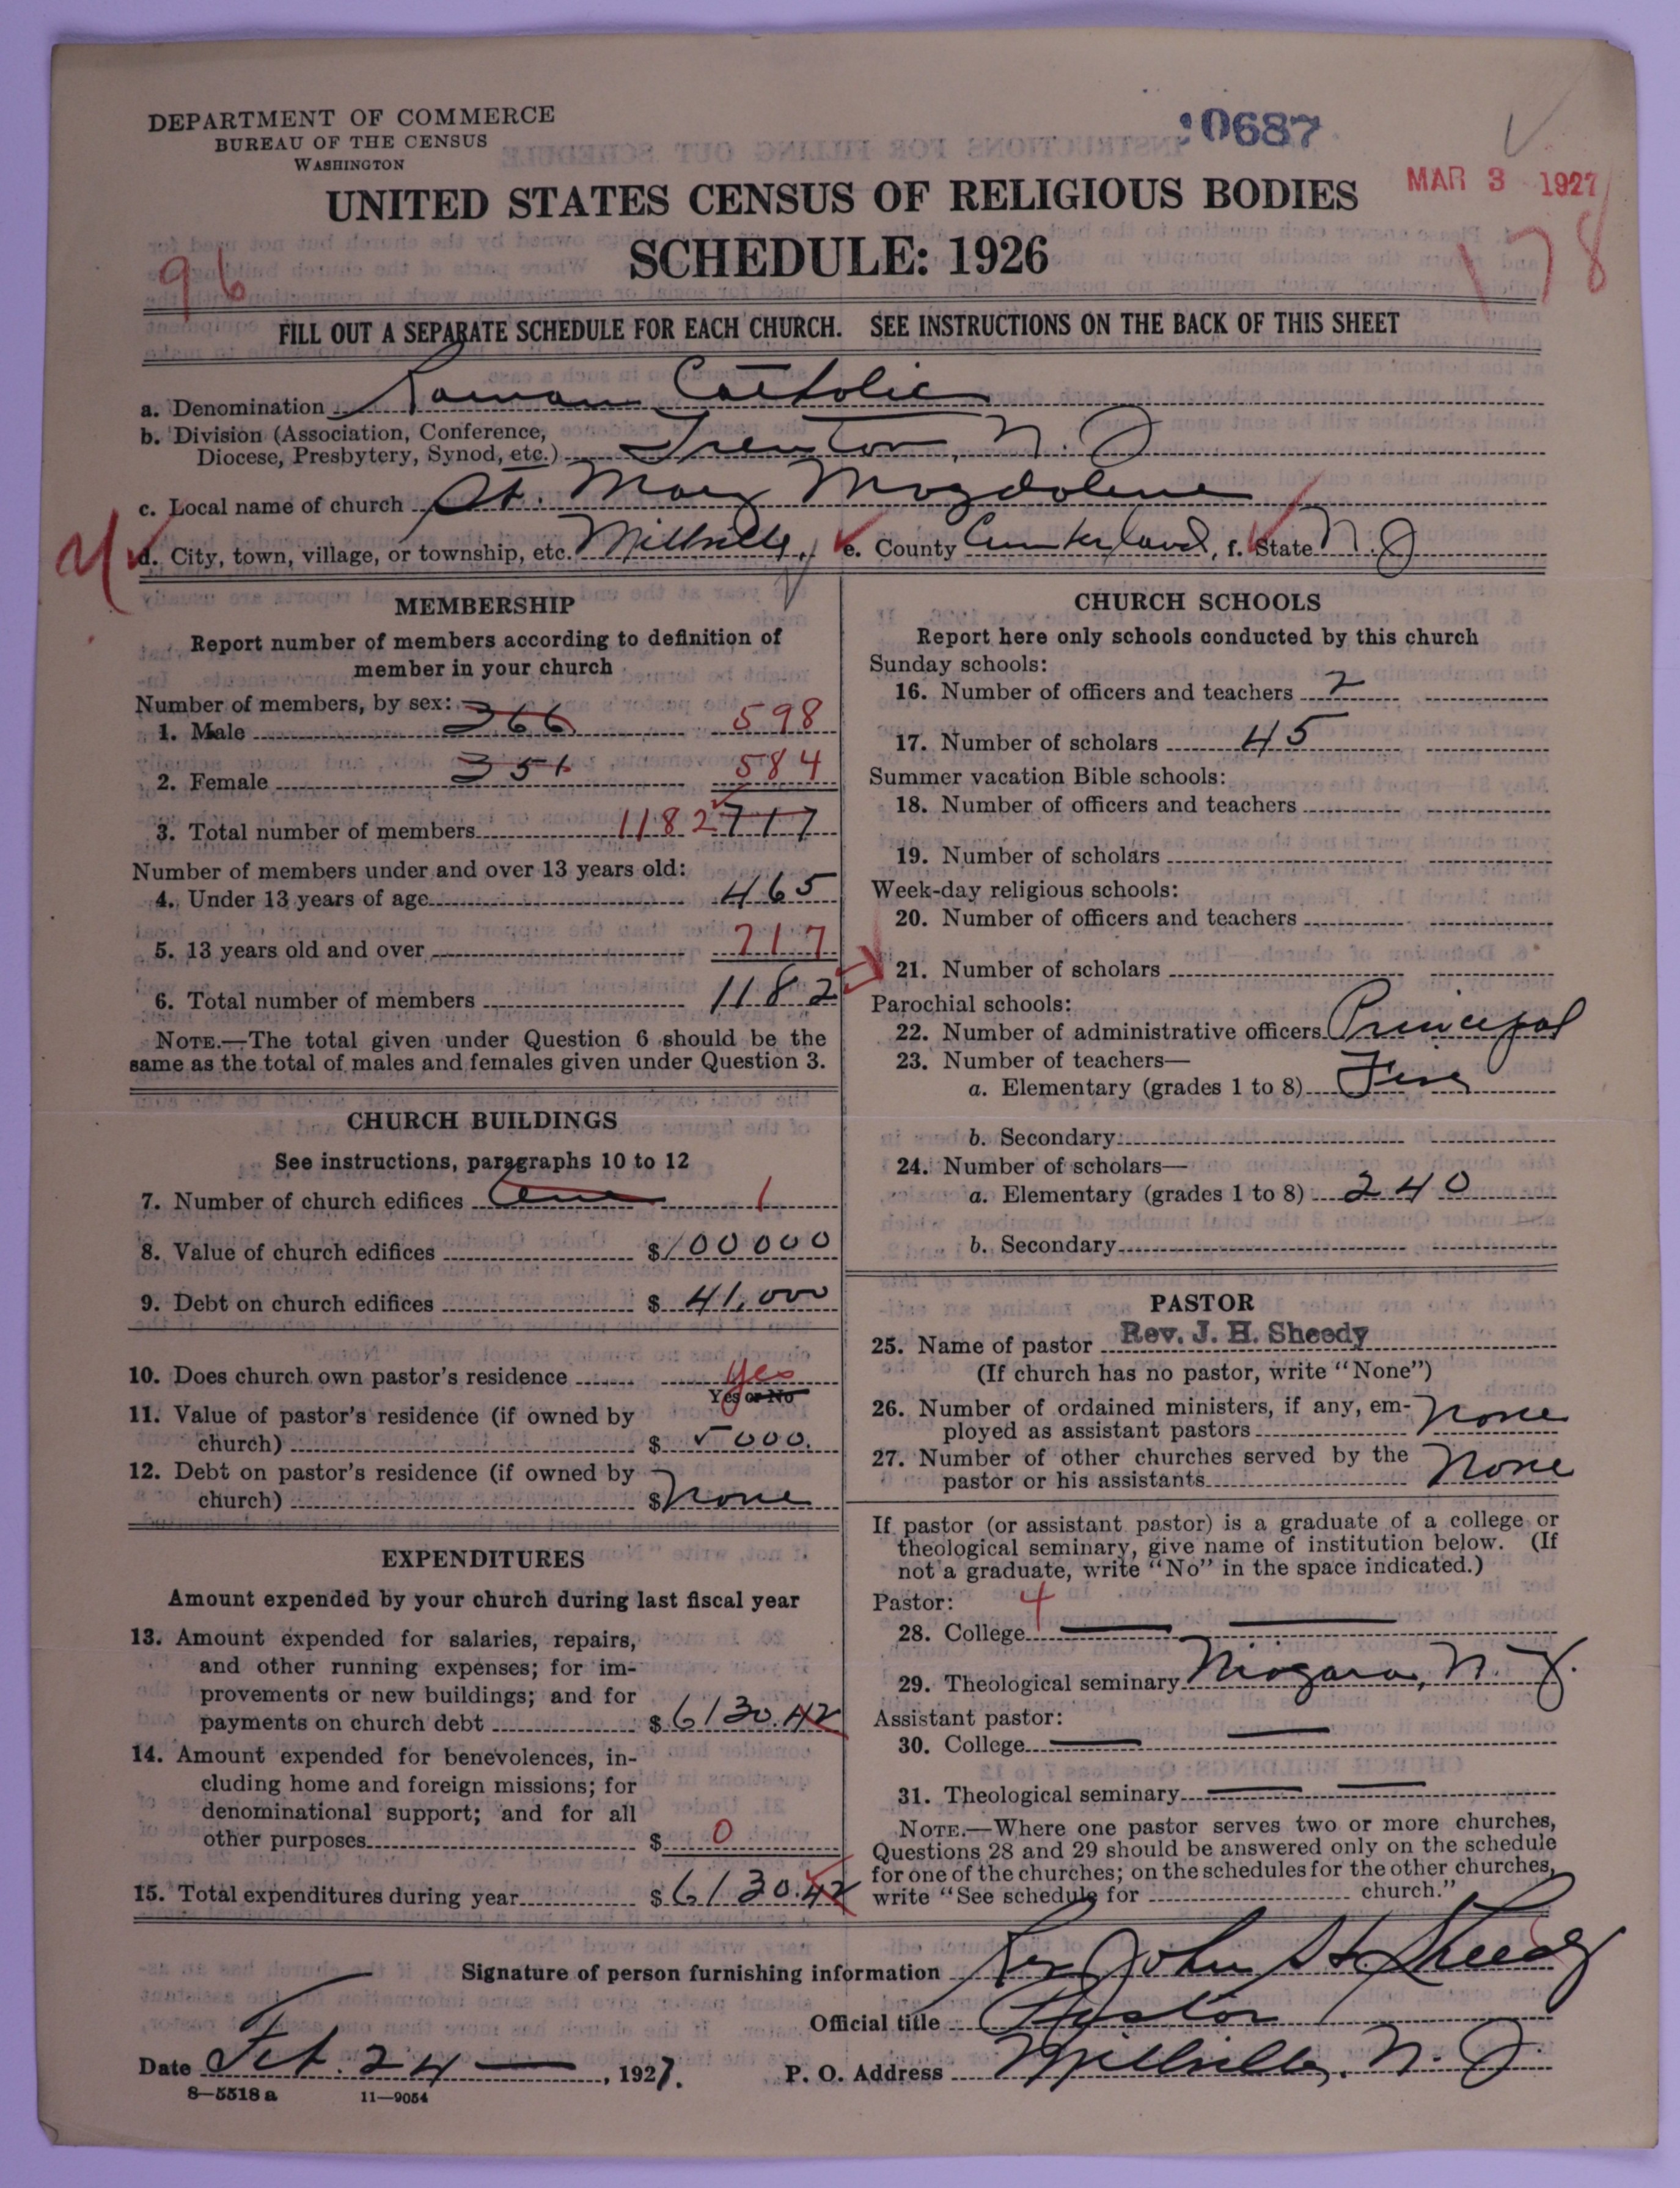 DEPARTMENT OF COMMERCE
BUREAU OF THE CENSUS
WASHINGTON
0687
MAR 3 1927
UNITED STATES CENSUS OF RELIGIOUS BODIES
SCHEDULE: 1926
96
178
FILL OUT A SEPARATE SCHEDULE FOR EACH CHURCH. SEE INSTRUCTIONS ON THE BACK OF THIS SHEET
a. Denomination Roman Catholic
b. Division (Association, Conference, Diocese, Presbytery, Synod, etc.) Trenton, N. J.
c. Local name of church St. Mary Magdalene
d. City, town, village, or township, etc. Millville, e. County Cumberland, f. State N. J.
MEMBERSHIP
Report number of members according to definition of
member in your church
Number of members, by sex:
1. Male 366 598
2. Female 351 584
3. Total number of members 1182 717
Number of members under and over 13 years old:
4. Under 13 years of age 465
5. 13 years old and over 717
6. Total number of members 1182
NOTE.—The total given under Question 6 should be the
same as the total of males and females given under Question 3.
CHURCH BUILDINGS
See instructions, paragraphs 10 to 12
7. Number of church edifices One 1
8. Value of church edifices $100000
9. Debt on church edifices $41,000
10. Does church own pastor's residence yes
Yes or No
11. Value of pastor's residence (if owned by
church) $5000.
12. Debt on pastor's residence (if owned by
church) $none
EXPENDITURES
Amount expended by your church during last fiscal year
13. Amount expended for salaries, repairs,
and other running expenses; for im-
provements or new buildings; and for
payments on church debt $6130.42
14. Amount expended for benevolences, in-
cluding home and foreign missions; for
denominational support; and for all
other purposes $0
15. Total expenditures during year $6130.42
CHURCH SCHOOLS
Report here only schools conducted by this church
Sunday schools:
16. Number of officers and teachers 2
17. Number of scholars 45
Summer vacation Bible schools:
18. Number of officers and teachers
19. Number of scholars
Week-day religious schools:
20. Number of officers and teachers
21. Number of scholars
Parochial schools:
22. Number of administrative officers Principal
23. Number of teachers—
a. Elementary (grades 1 to 8) Five
b. Secondary
24. Number of scholars—
a. Elementary (grades 1 to 8) 240
b. Secondary
PASTOR
25. Name of pastor Rev. J. H. Sheedy
(If church has no pastor, write "None")
26. Number of ordained ministers, if any, em-
ployed as assistant pastors none
27. Number of other churches served by the
pastor or his assistants None
If pastor (or assistant pastor) is a graduate of a college or
theological seminary, give name of institution below. (If
not a graduate, write "No" in the space indicated.)
Pastor: 4
28. College
29. Theological seminary Niagara, N. Y.
Assistant pastor:
30. College
31. Theological seminary
NOTE.—Where one pastor serves two or more churches,
Questions 28 and 29 should be answered only on the schedule
for one of the churches; on the schedules for the other churches,
write "See schedule for church."
Signature of person furnishing information Rev John H Sheedy
Official title Pastor
Date Feb. 24, 1927. P. O. Address Millville, N. J.
8—5518 a 11—9054